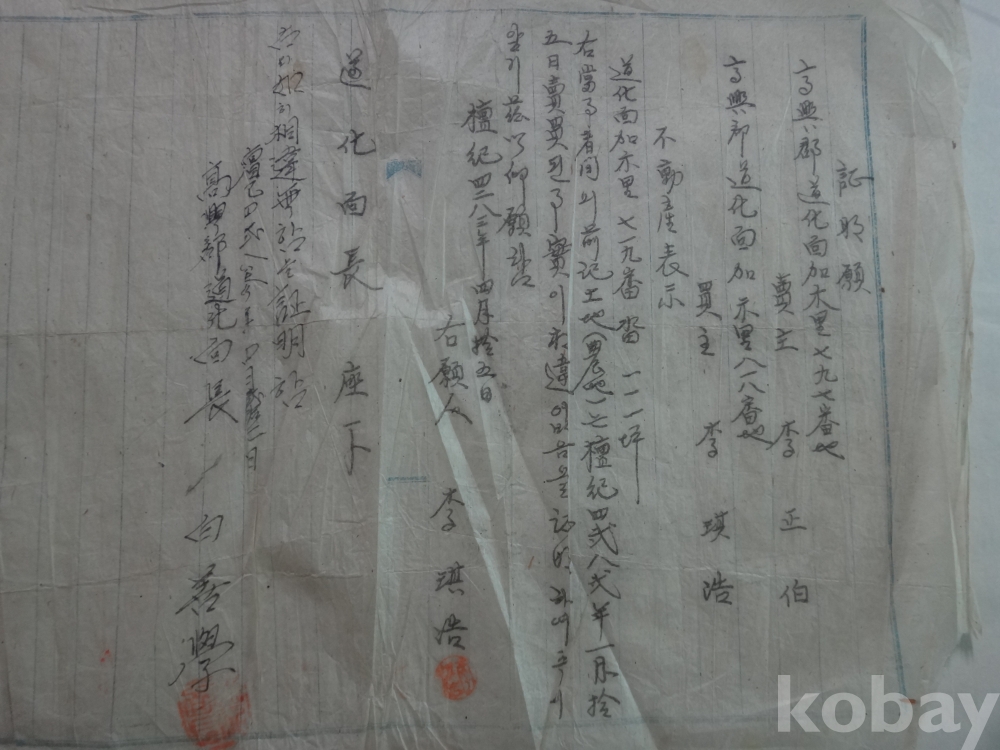 証明願
高興郡道化面加禾里七九七番地
賣主 李正伯
高興郡道化面加禾里八一八番地
買主 李琪浩
不動産表示
道化面加禾里七一九番 畓 一一一坪
右當事者間의前記土地(農地)는檀紀四弐八弐年一月拾
五日賣買된事實이 違 음을証明하여주시
압기玆以仰願함
檀紀四二八三年 四月拾五日
右願人 李琪浩
道化面長 座下
相違無 証明
檀紀四弐八 日
高興郡道化面長 白 學
kobay